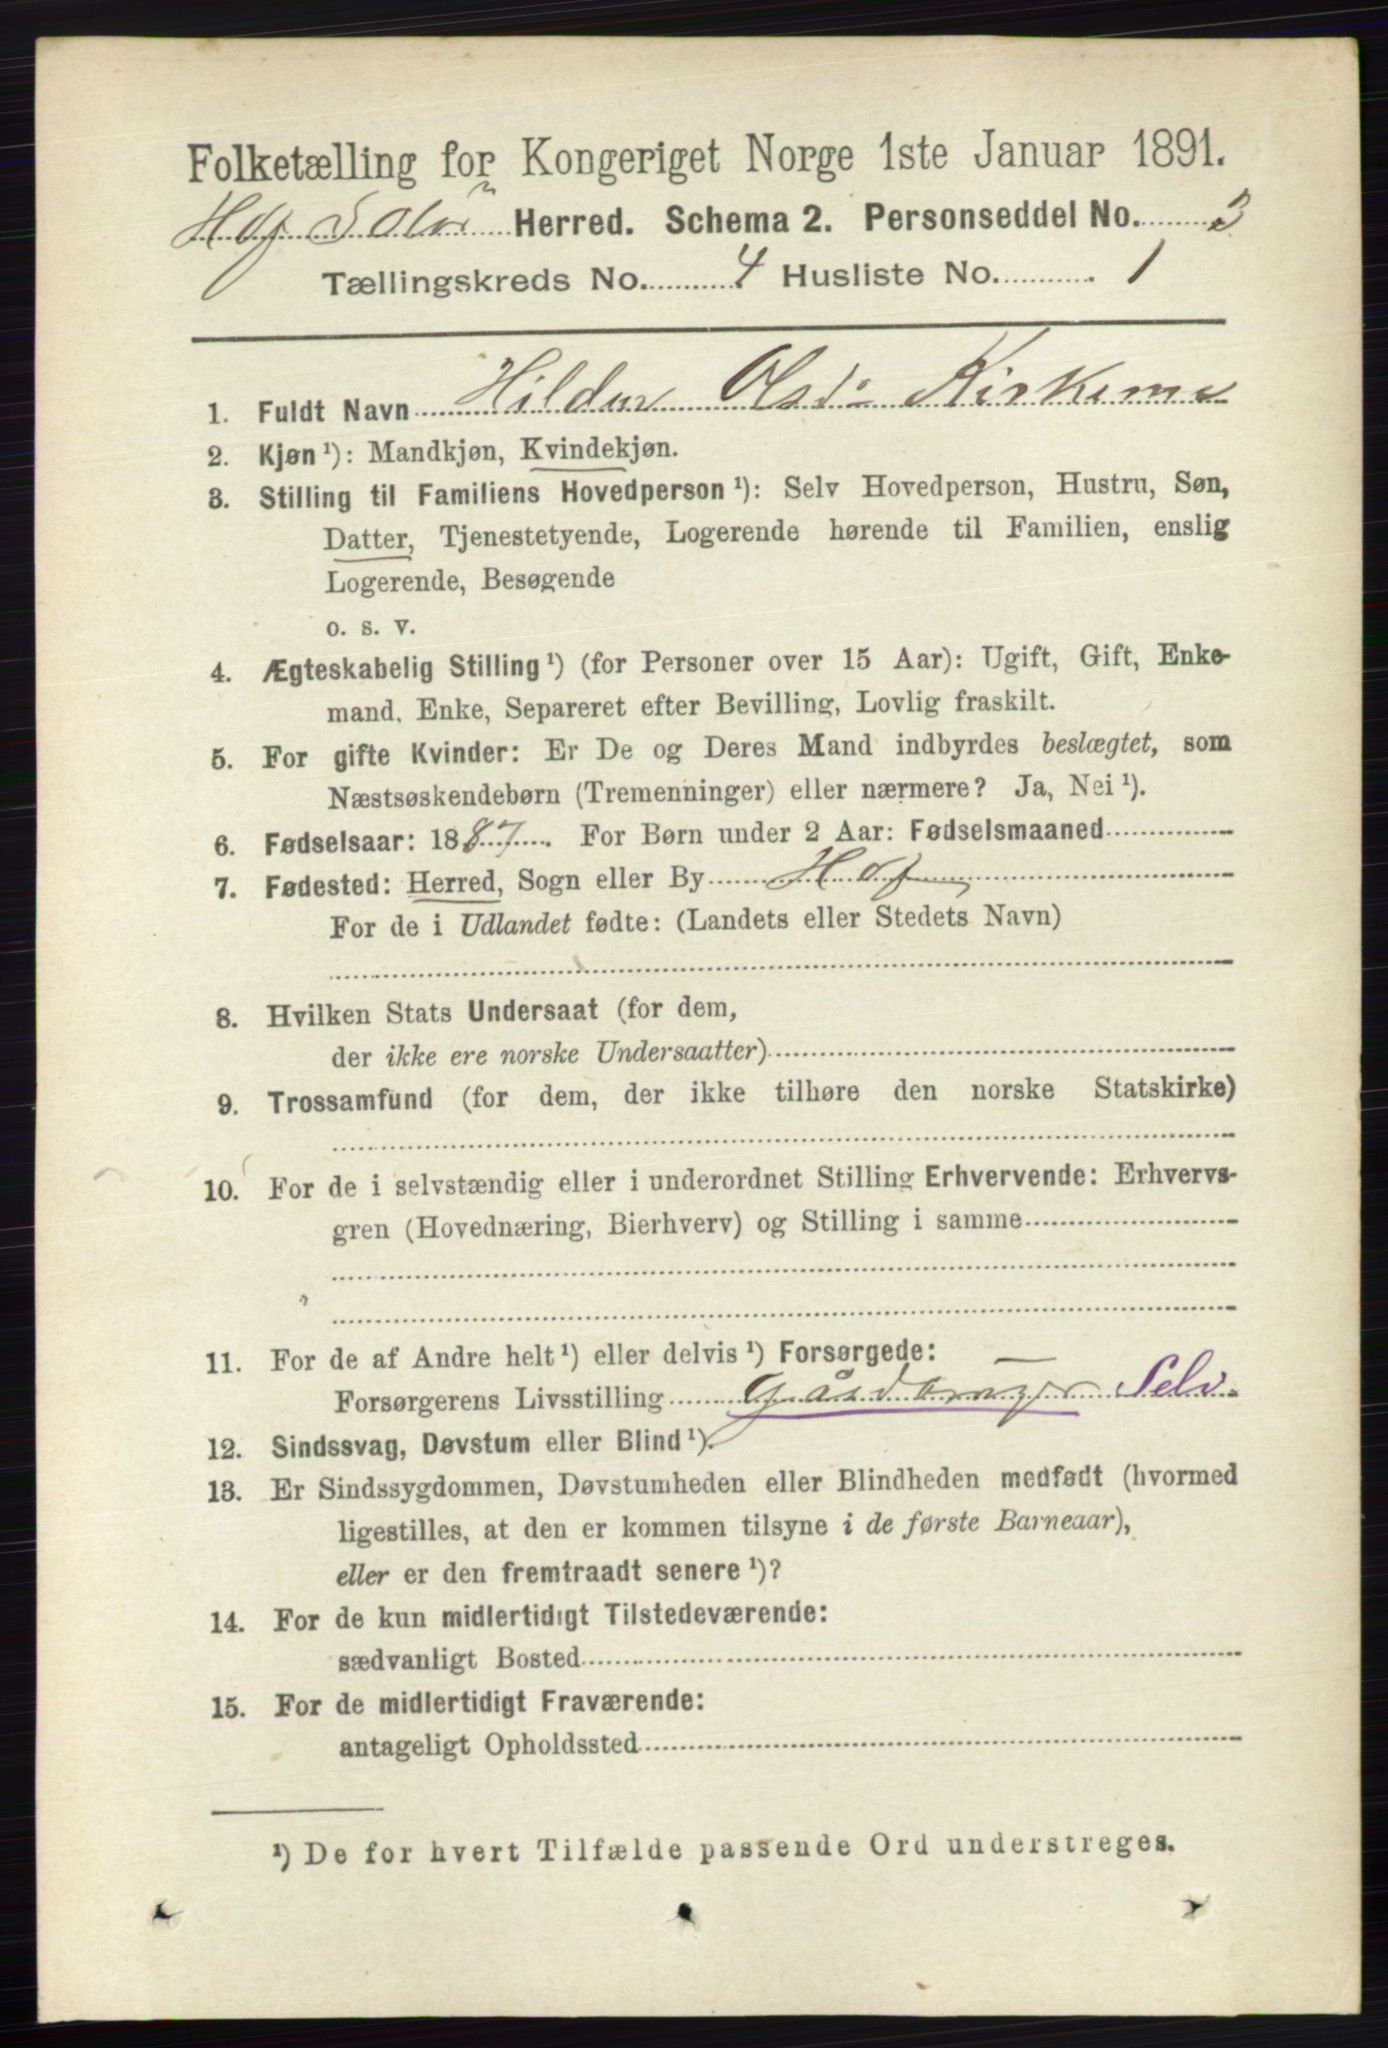 Folketælling for Kongeriget Norge 1ste Januar 1891.
Hof Solør Herred. Schema 2. Personseddel No. 3
Tællingskreds No. 4 Husliste No. 1
1. Fuldt Navn Hilda Olsd.
2. Kjøn ¹): Mandkjøn, Kvindekjøn.
3. Stilling til Familiens Hovedperson ¹): Selv Hovedperson, Hustru, Søn,
Datter, Tjenestetyende, Logerende hørende til Familien, enslig
Logerende, Besøgende
o. s. v.
4. Ægteskabelig Stilling ¹) (for Personer over 15 Aar): Ugift, Gift, Enke-
mand, Enke, Separeret efter Bevilling, Lovlig fraskilt.
5. For gifte Kvinder: Er De og Deres Mand indbyrdes beslægtet, som
Næstsøskendebørn (Tremenninger) eller nærmere? Ja, Nei ¹).
6. Fødselsaar: 1887. For Børn under 2 Aar: Fødselsmaaned
7. Fødested: Herred, Sogn eller By Hof
For de i Udlandet fødte: (Landets eller Stedets Navn)
8. Hvilken Stats Undersaat (for dem,
der ikke ere norske Undersaatter)
9. Trossamfund (for dem, der ikke tilhøre den norske Statskirke)
10. For de i selvstændig eller i underordnet Stilling Erhvervende: Erhvervs-
gren (Hovednæring, Bierhverv) og Stilling i samme
11. For de af Andre helt ¹) eller delvis ¹) Forsørgede:
Forsørgerens Livsstilling Selv.
12. Sindssvag, Døvstum eller Blind ¹).
13. Er Sindssygdommen, Døvstumheden eller Blindheden medfødt (hvormed
ligestilles, at den er kommen tilsyne i de første Barneaar),
eller er den fremtraadt senere ¹)?
14. For de kun midlertidigt Tilstedeværende:
sædvanligt Bosted
15. For de midlertidigt Fraværende:
antageligt Opholdssted
¹) De for hvert Tilfælde passende Ord understreges.